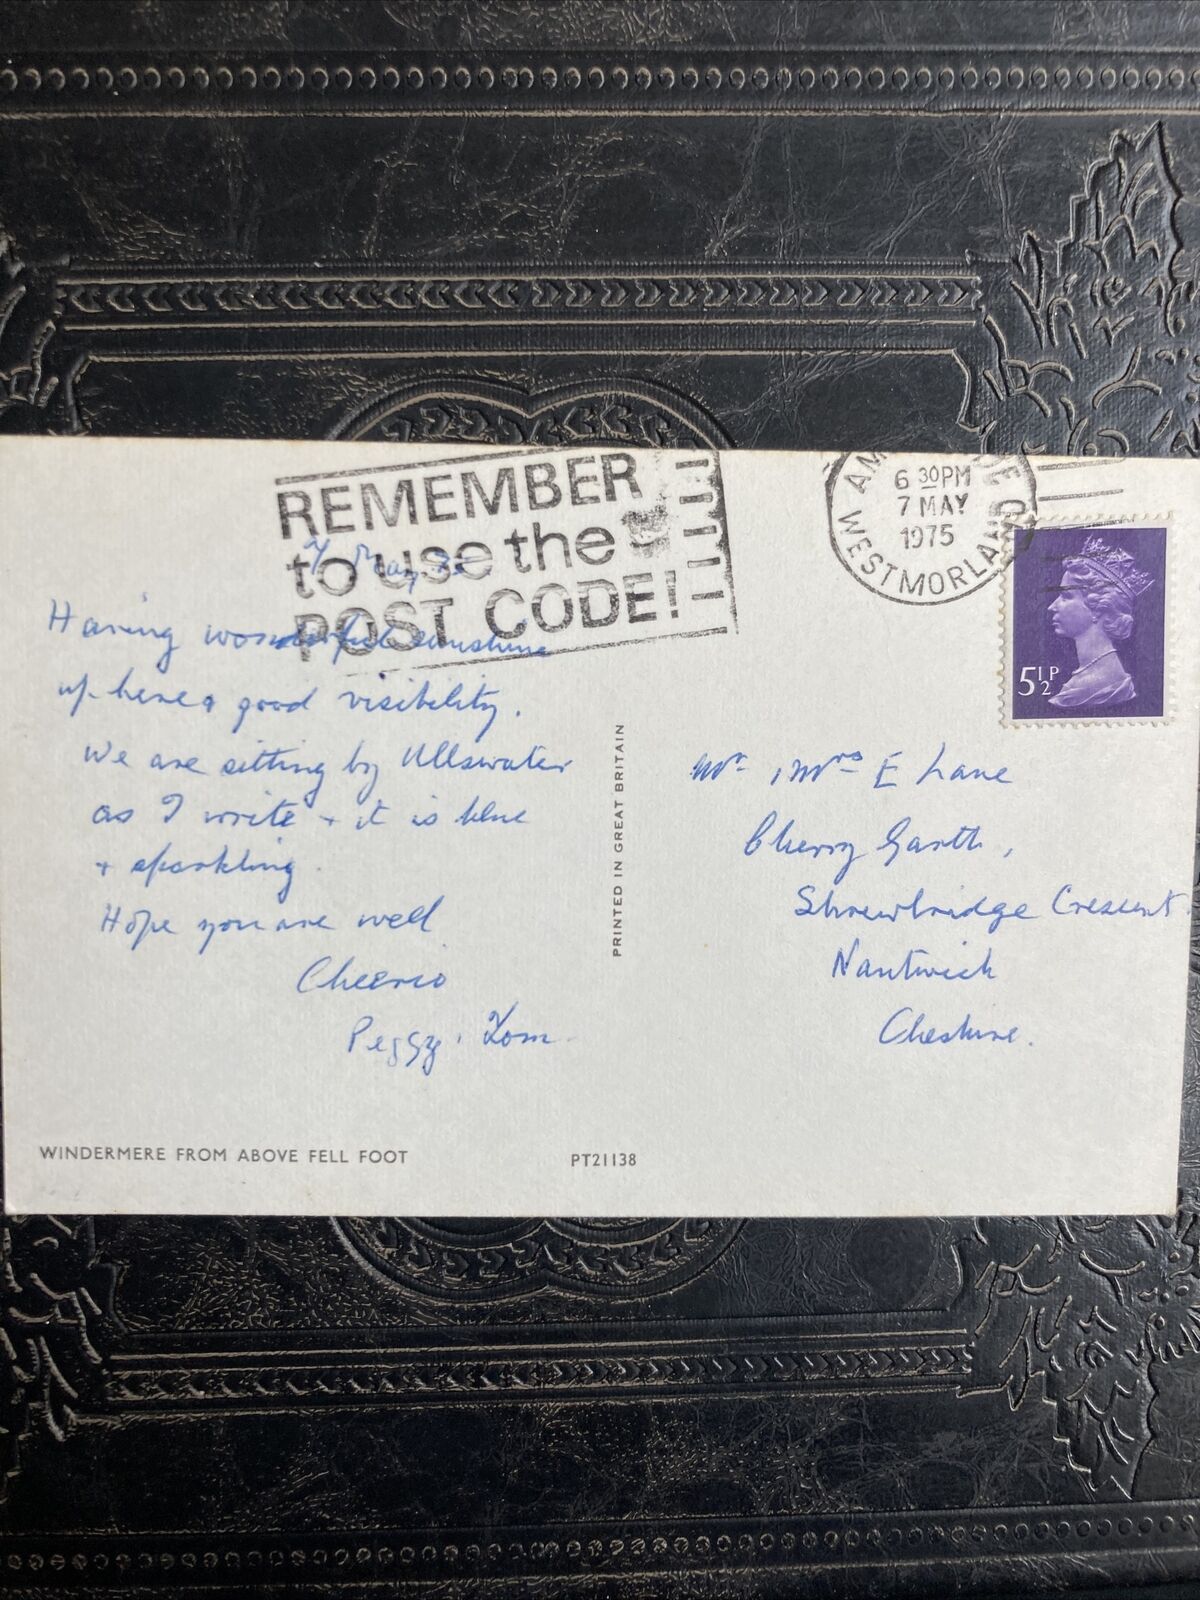 REMEMBER
to use the
POST CODE!
6 30PM
7 MAY
1975
WESTMORLAND
5½P
7 May 75
Having wonderful sunshine
up here & good visibility.
We are sitting by Ullswater
as I write + it is blue
+ sparkling.
Hope you are well
Cheerio
Peggy & Tom
PRINTED IN GREAT BRITAIN
Mr & Mrs E Lane
Cherry Garth,
Shrewbridge Crescent
Nantwich
Cheshire.
WINDERMERE FROM ABOVE FELL FOOT
PT21138